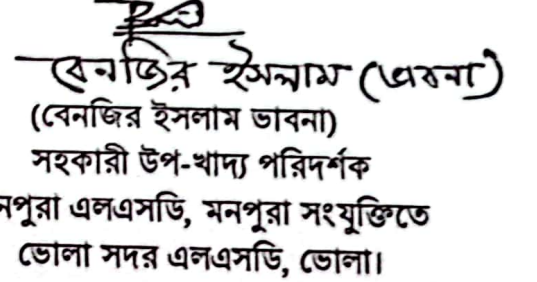 বেনজির ইসলাম (ভাবনা)
(বেনজির ইসলাম ভাবনা)
সহকারী উপ-খাদ্য পরিদর্শক
নপুরা এলএসডি, মনপুরা সংযুক্তিতে
ভোলা সদর এলএসডি, ভোলা।